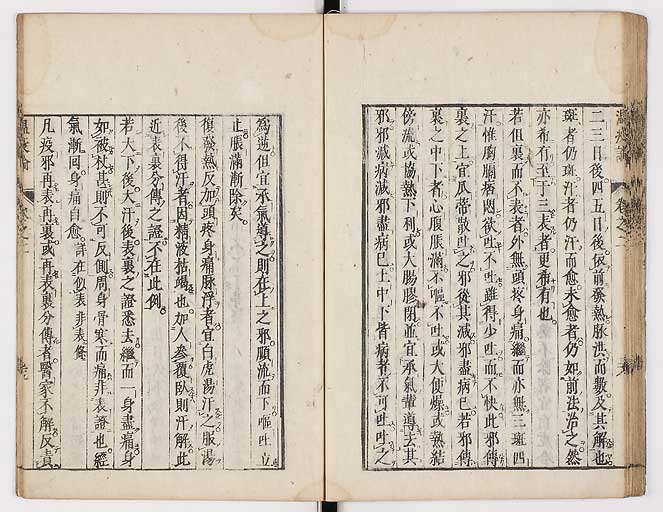 二三日後四五日後依前發熱脉洪而數及其解也
斑者仍斑汗者仍汗而愈未愈者仍如前法治之然
亦希有至于三表者更希有也
若但裏而不表者外無頭疼身痛繼而亦無三斑四
汗惟胸膈痞悶欲吐不吐雖得少吐而不快此邪傳
裏之上宜瓜蒂散吐之邪從其減邪盡病已若邪傳
裏之中下者心腹脹滿不嘔不吐或大便燥或熱結
傍流或協熱下利或大腸膠閉並宜承氣輩導去其
邪邪減病減邪盡病已上中下皆病者不可吐吐之
為逆但宜承氣導之則在上之邪順流而下嘔吐立
止脹滿漸除矣
復發熱反加頭疼身痛脉浮者宜白虎湯汗之服湯
後不得汗者因精液枯竭也加人參覆臥則汗解此
近表裏分傳之證不在此例
若大下後大汗後表裏之證悉去繼而一身盡痛身
如被杖甚則不可反側周身骨寒而痛非表證也經
氣漸回身痛自愈 詳在似表非表條
凡疫邪再表再裏或再表裏分傳者醫家不解反責